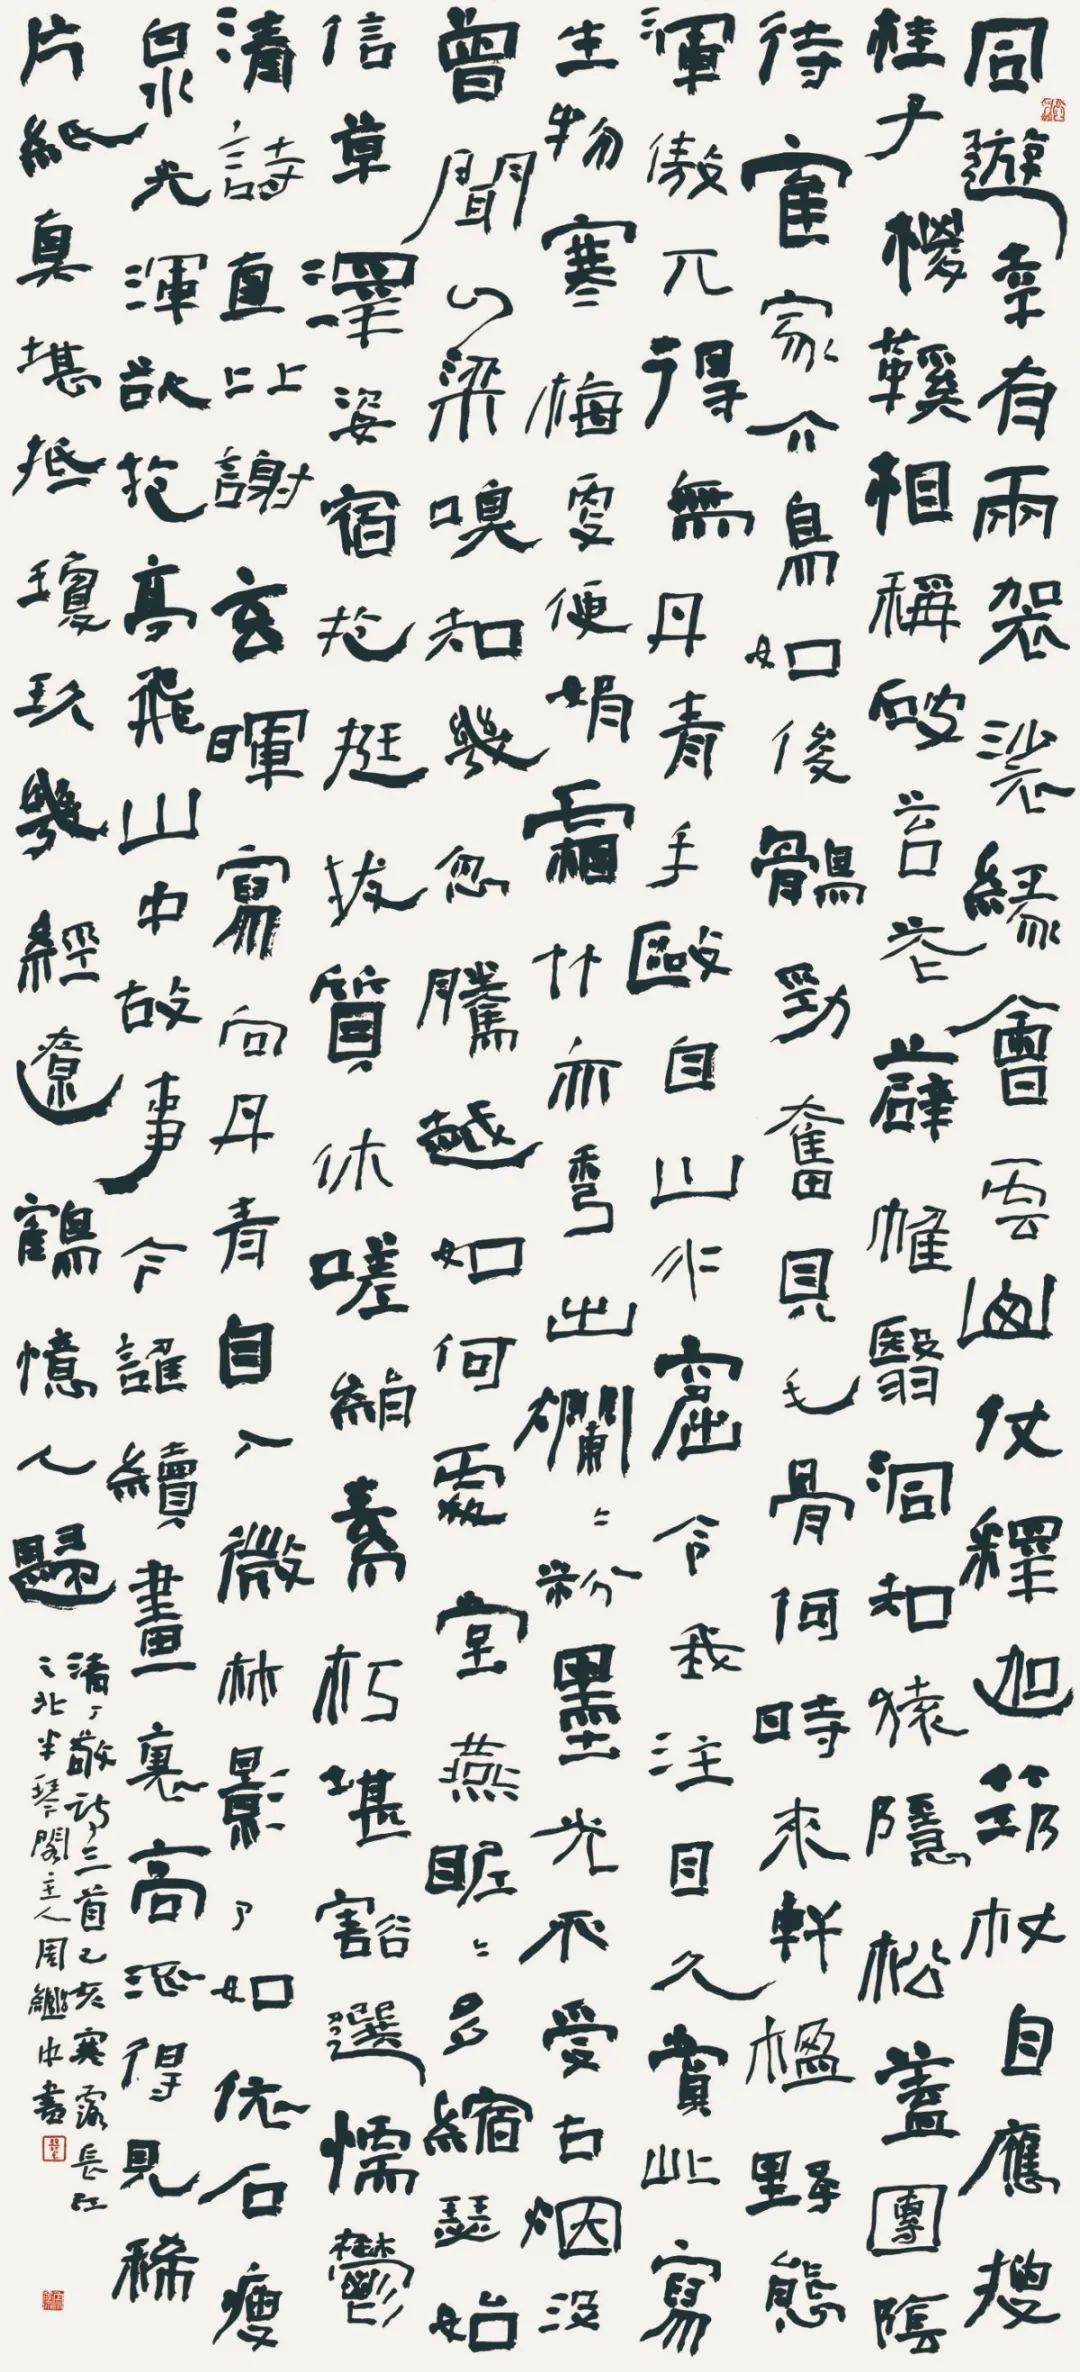 同遊幸有兩袈裟緣會雲仗釋迦筇杖自應搜
桂椶鞵相稱破苔花薜帷翳洞知猿隱松蓋團陰
待隺家介鳥如後鶻勁奮見毛骨何時來軒楹野態
渾傲兀得無丹青手毆自山水窟令我注目久賞此寫
生物寒梅便娟霜竹亦彎出爛〻粉墨光不受古烟沒
曾聞山梁嗅知幾忽騰越如何處堂燕眤〻多縮瑟始
信草澤姿宿抱挺拔質休嗟絹素朽堪豁選懦鬱
清詩直比謝玄暉寫向丹青自入微林影了如依石瘦
泉光渾欲抱亭飛山中故事今誰續畫裏高得見稀
片紙真堪抵瓊玖幾經遼鶴憶人歸
清丁敬詩三首乙亥寒露長江
之北半琴閣主人周繼中書